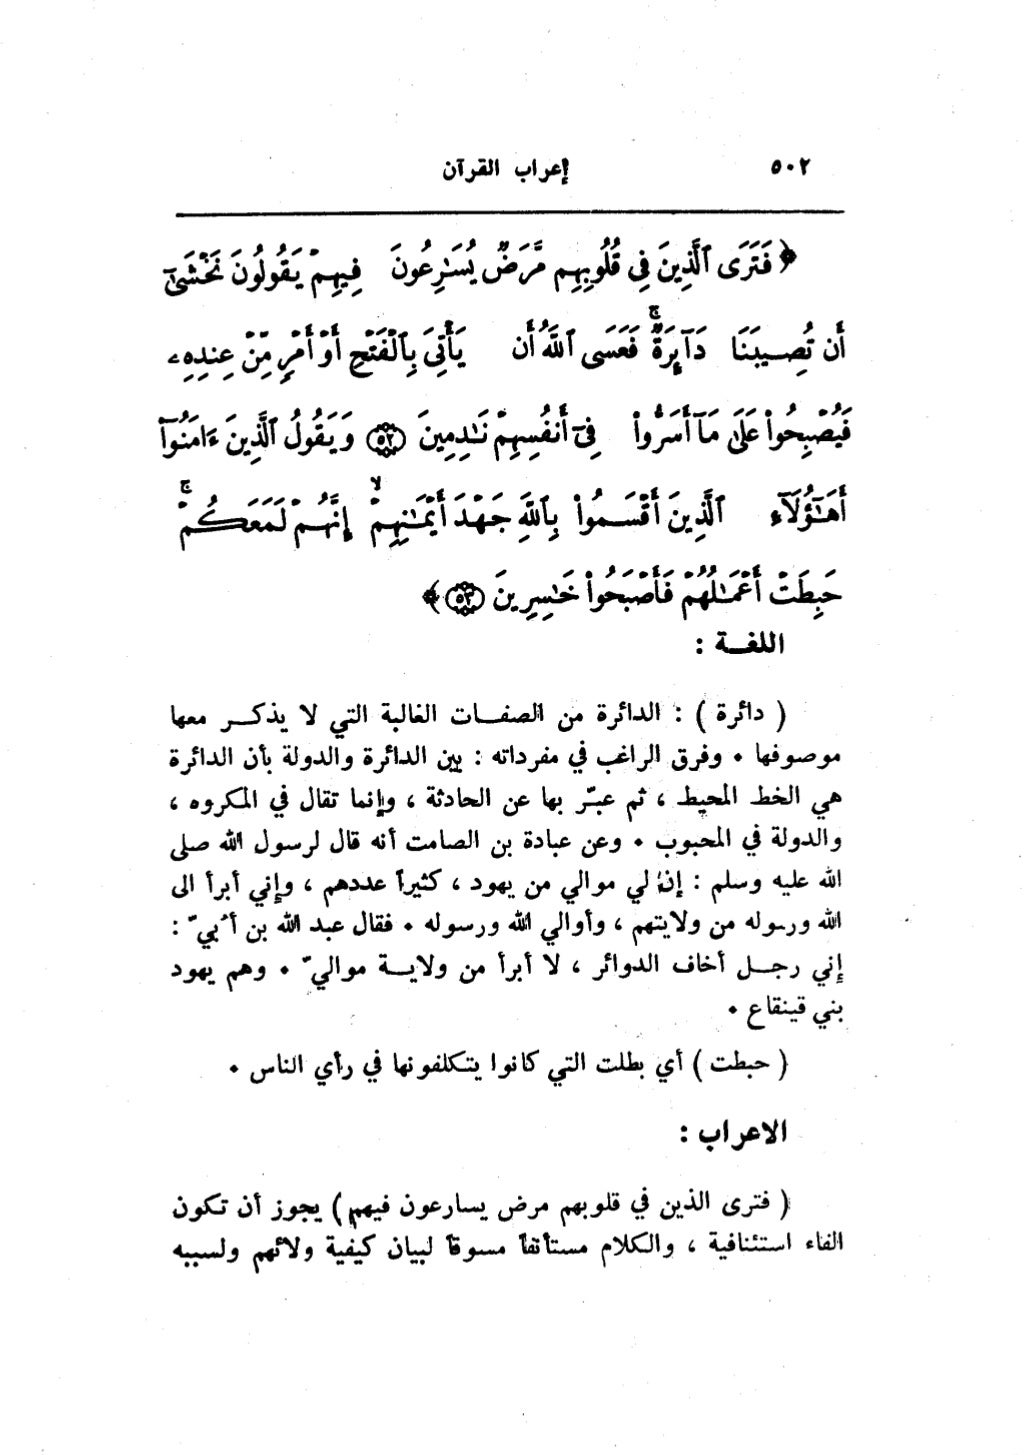 ٥٠٢
إعراب القرآن
﴿ فَتَرَى ٱلَّذِينَ فِى قُلُوبِهِم مَّرَضٌ يُسَٰرِعُونَ فِيهِمْ يَقُولُونَ نَخْشَىٰٓ
أَن تُصِيبَنَا دَآئِرَةٌ ۚ فَعَسَى ٱللَّهُ أَن يَأْتِىَ بِٱلْفَتْحِ أَوْ أَمْرٍ مِّنْ عِندِهِۦ
فَيُصْبِحُوا۟ عَلَىٰ مَآ أَسَرُّوا۟ فِىٓ أَنفُسِهِمْ نَٰدِمِينَ ٥٢ وَيَقُولُ ٱلَّذِينَ ءَامَنُوٓا۟
أَهَٰٓؤُلَآءِ ٱلَّذِينَ أَقْسَمُوا۟ بِٱللَّهِ جَهْدَ أَيْمَٰنِهِمْ ۙ إِنَّهُمْ لَمَعَكُمْ ۚ
حَبِطَتْ أَعْمَٰلُهُمْ فَأَصْبَحُوا۟ خَٰسِرِينَ ٥٣ ﴾
اللغـة :
( دائرة ) : الدائرة من الصفـات الغالبة التي لا يذكـر معها
موصوفها . وفرق الراغب في مفرداته : بين الدائرة والدولة بأن الدائرة
هي الخط المحيط ، ثم عبّر بها عن الحادثة ، وإنما تقال في المكروه ،
والدولة في المحبوب . وعن عبادة بن الصامت أنه قال لرسول الله صلى
الله عليه وسلم : إن لي موالي من يهود ، كثيراً عددهم ، وإني أبرأ الى
الله ورسوله من ولايتهم ، وأوالي الله ورسوله . فقال عبد الله بن أُبيّ :
إني رجـل أخاف الدوائر ، لا أبرأ من ولايـة مواليّ . وهم يهود
بني قينقاع .
( حبطت ) أي بطلت التي كانوا يتكلفونها في رأي الناس .
الاعراب :
( فترى الذين في قلوبهم مرض يسارعون فيهم ) يجوز أن تكون
الفاء استئنافية ، والكلام مستأنفاً مسوقاً لبيان كيفية ولائهم ولسببه